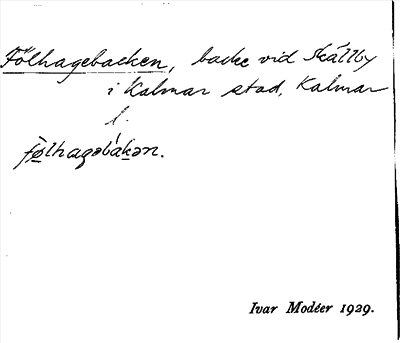 Fölhagebacken, backe vid Skällby
i Kalmar stad, Kalmar
l.
fø̀lhagəbákən.
Ivar Modéer 1929.